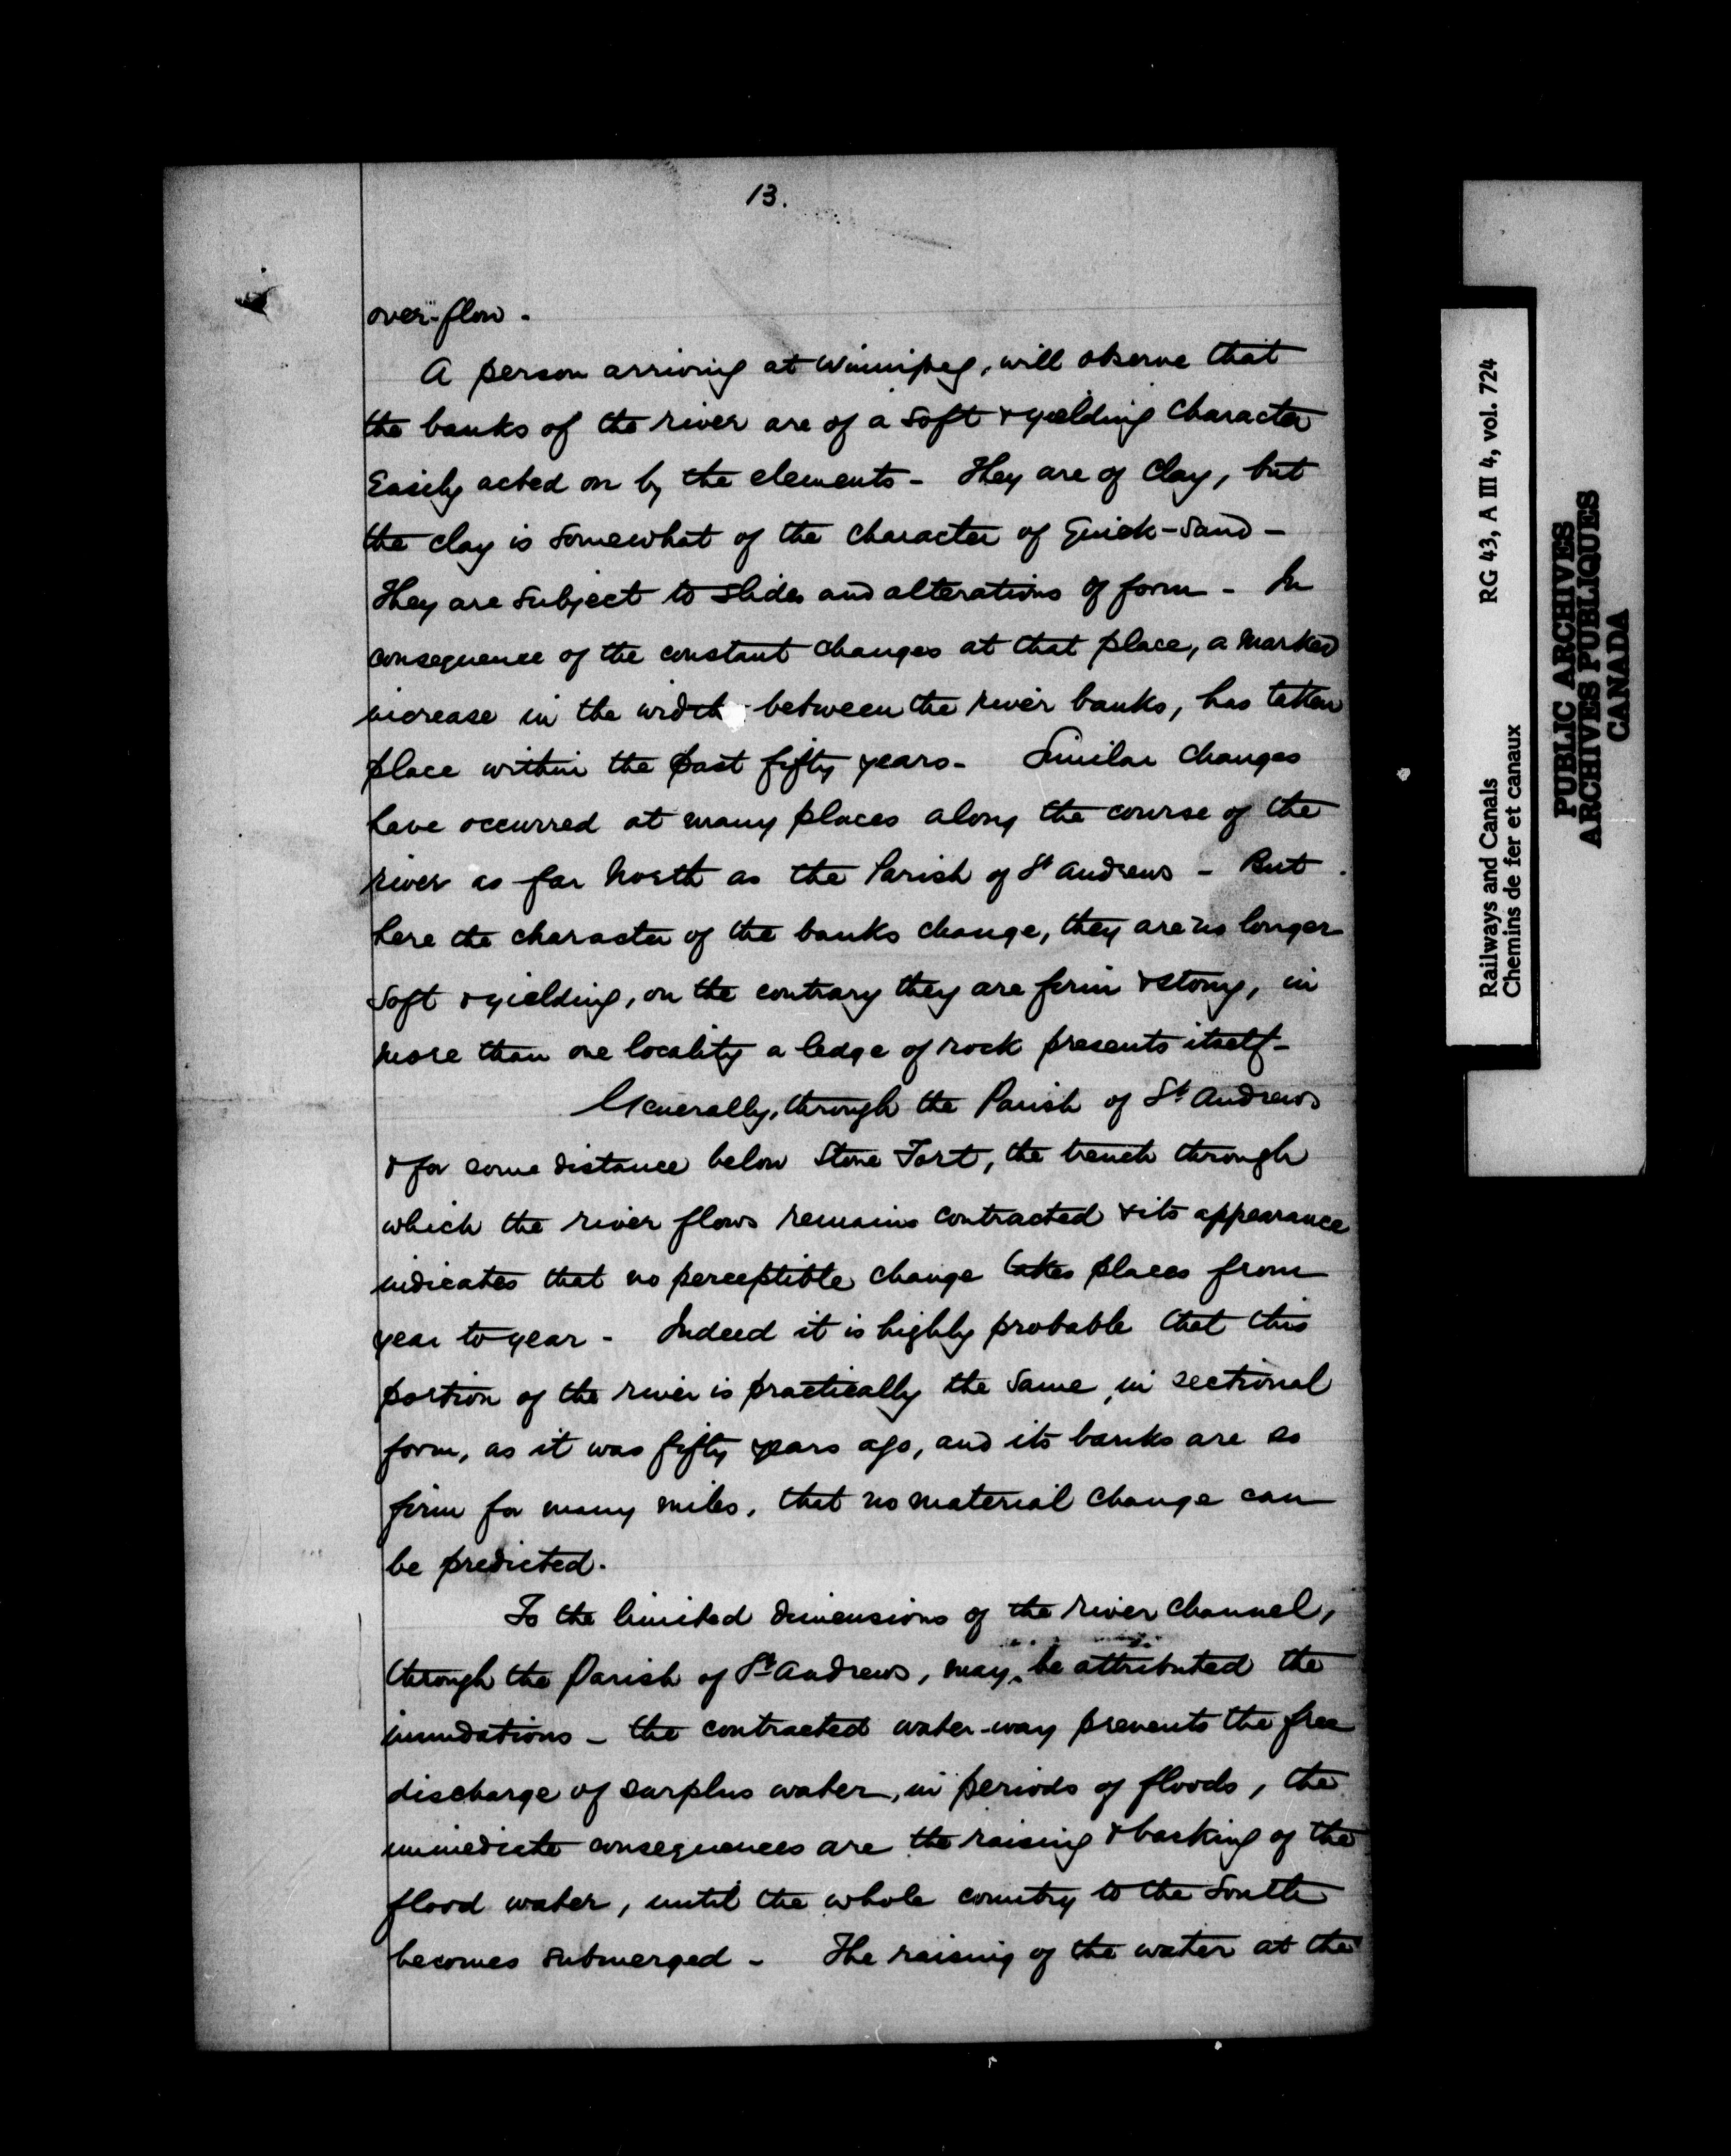 13.
over-flow.
A person arriving at Winnipeg, will observe that
the banks of the river are of a soft & yielding character
Easily acted on by the elements - They are of Clay, but
the clay is somewhat of the character of Quick-sand -
They are subject to slides and alterations of form - In
consequence of the constant changes at that place, a marked
increase in the width between the river banks, has taken
place within the past fifty years - Similar changes
have occurred at many places along the course of the
river as far North as the Parish of St Andrews - But
here the character of the banks change, they are no longer
soft & yielding, on the contrary they are firm & stony, in
more than one locality a ledge of rock presents itself -
Generally, through the Parish of St Andrews
& for some distance below Stone Fort, the trench through
which the river flows remains contracted & its appearance
indicates that no perceptible change takes places from
year to year - Indeed it is highly probable that this
portion of the river is practically the same, in sectional
form, as it was fifty years ago, and its banks are so
firm for many miles, that no material change can
be predicted.
To the limited dimensions of the river channel,
through the Parish of St Andrews, may be attributed the
inundations - the contracted water-way prevents the free
discharge of surplus water, in periods of floods, the
immediate consequences are the raising & backing of the
flood water, until the whole country to the South
becomes submerged - The raising of the water at the
Railways and Canals RG 43, A III 4, vol. 724
Chemins de fer et canaux
PUBLIC ARCHIVES
ARCHIVES PUBLIQUES
CANADA